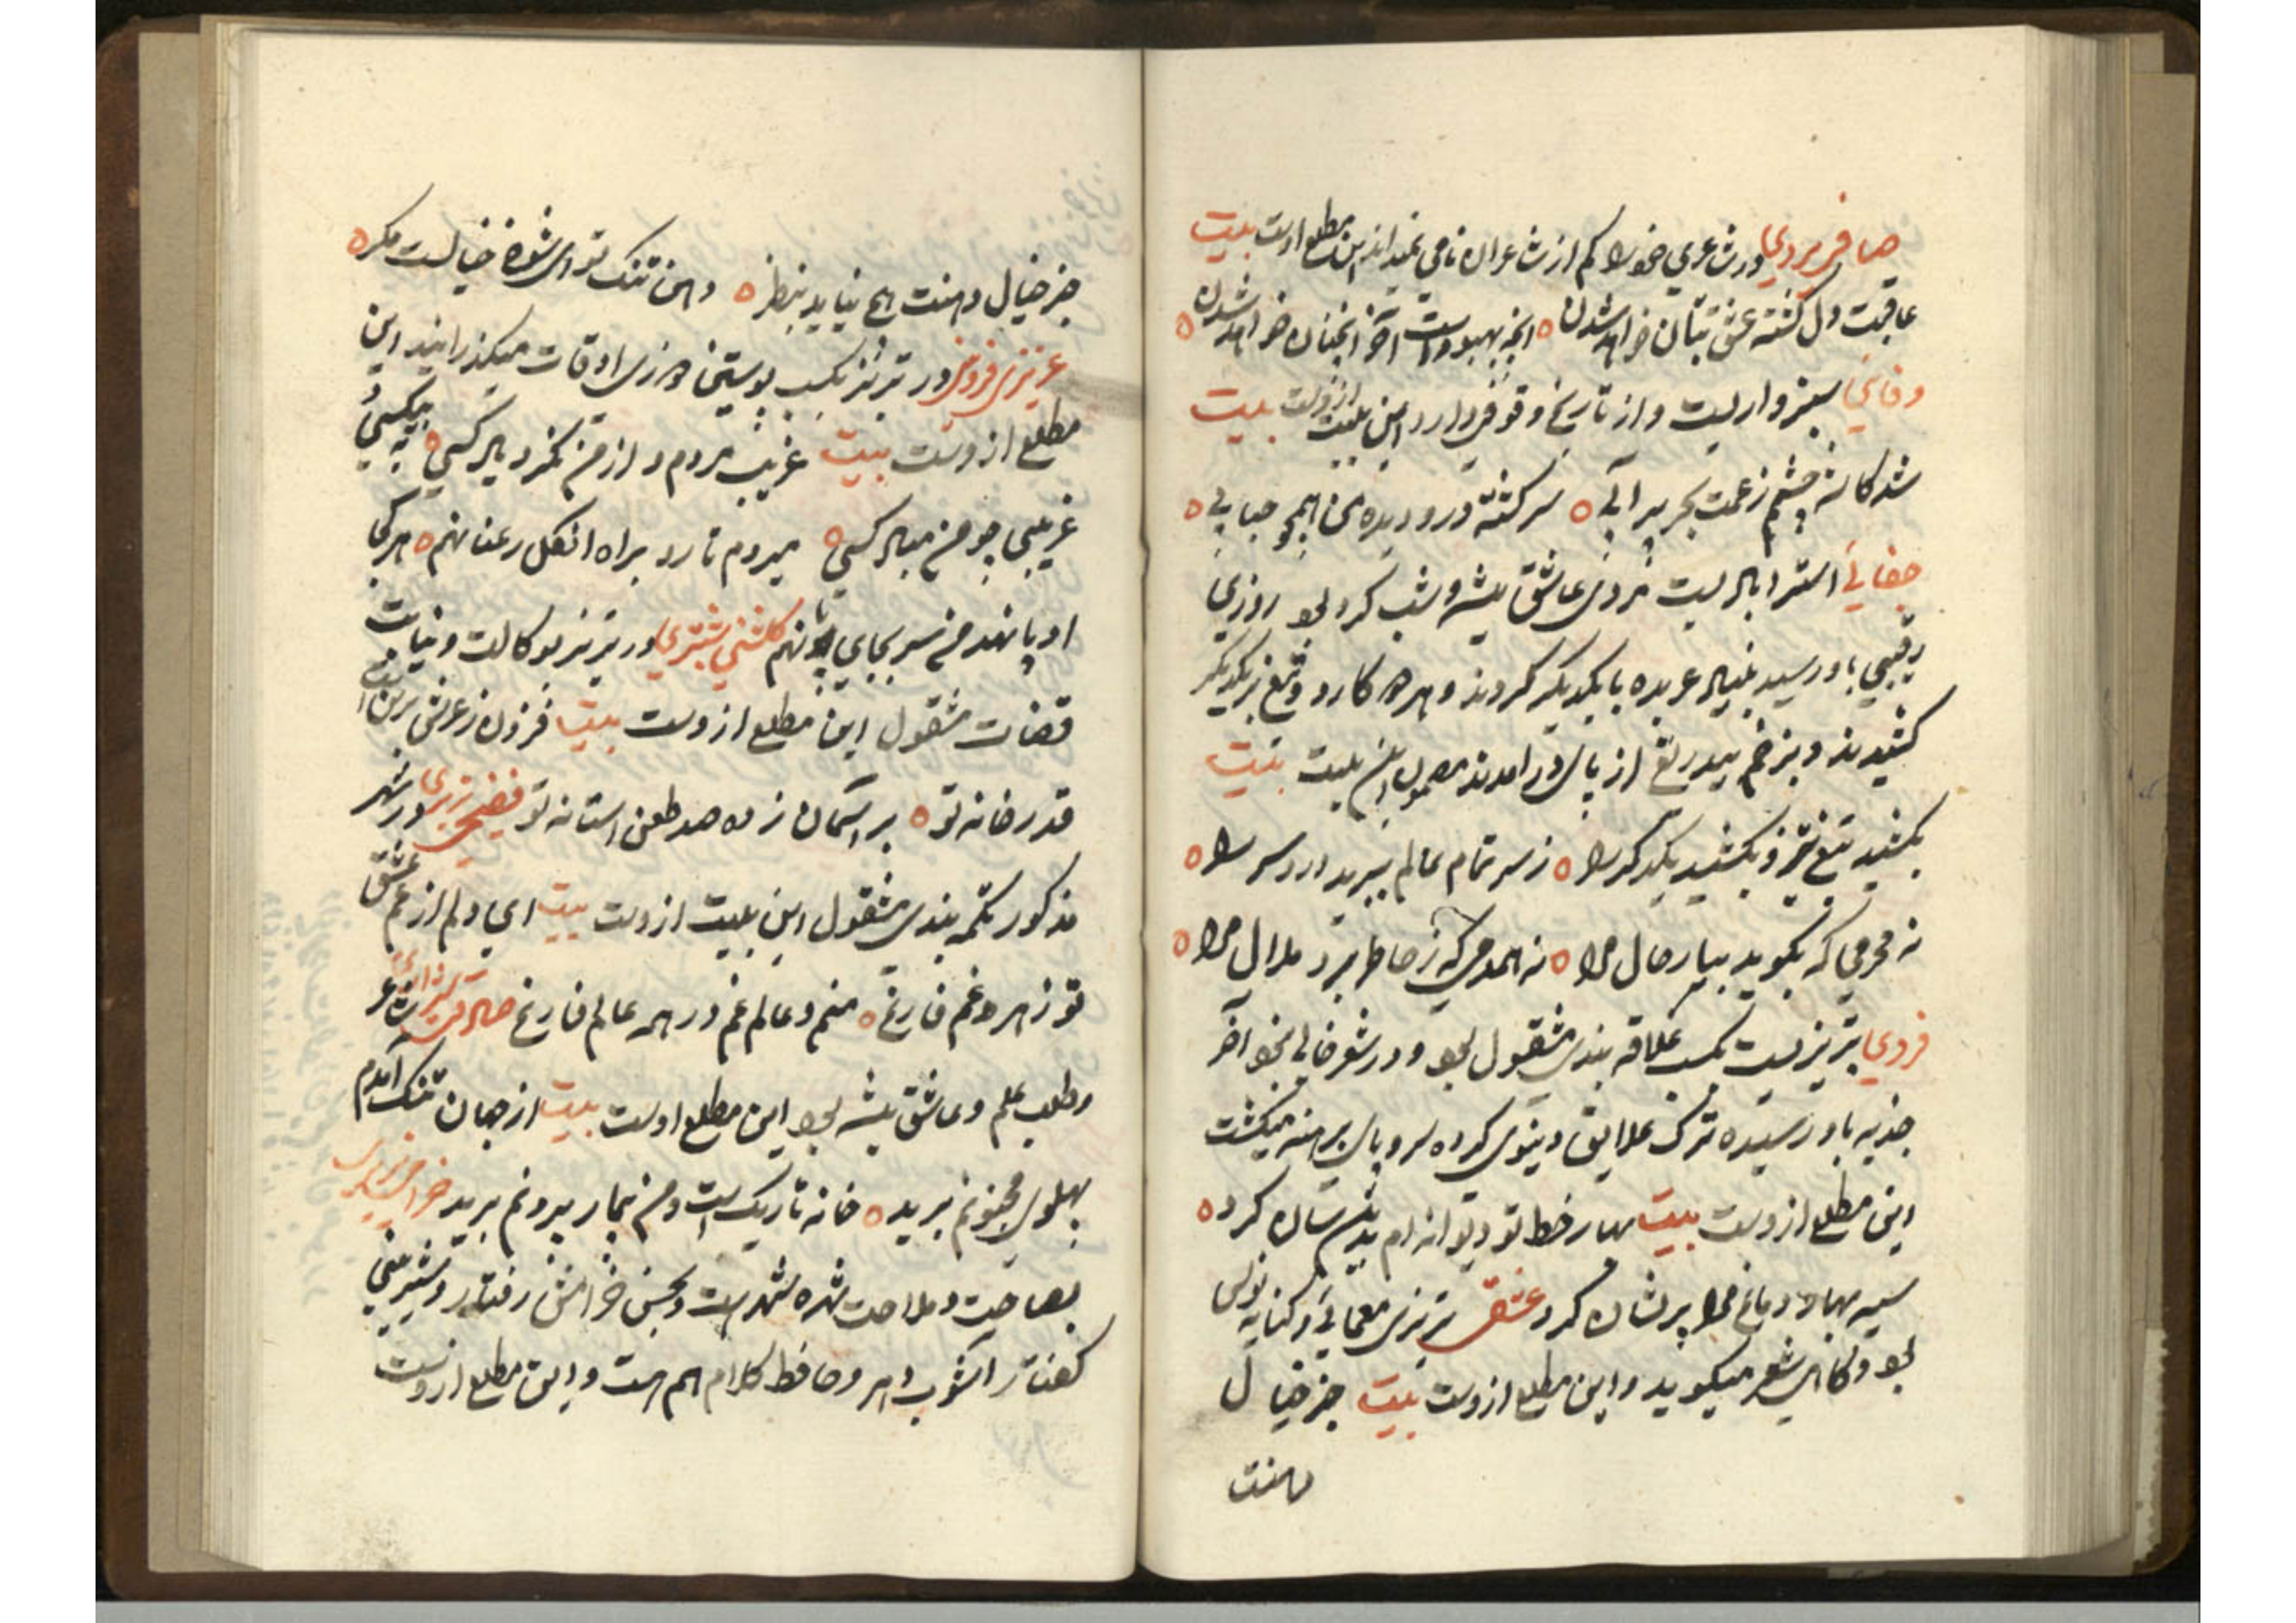 صافی یزدی در شاعری خود را کم از شاعران نامی نمیداند این مطلع اوست بیت
عاقبت دل کشته عشق بتان خواهد شدن ه انچه بهبودست آخر آنچنان خواهد شدن ه
وفائی سبزواریست و از تاریخ وقوفی دارد این بیت ازوست بیت
شد کاسه چشمم ز غمت بحر پر آبی ه سرکشته درو دیده من همچو حبابی ه
جفایی استرابادیست مردی عاشق پیشه و شب کرد بود روزی
رقیبی باو رسید بنیاد عربده با یکدیگر کردند و هر دو کارد و تیغ بر یکدیگر
کشیدند و بزخم بیدریغ از پای درامدند این بیت بیت
بکشید تیغ تیز و بکشید یکدکر را ه ز سر تمام عالم ببرید درد سر را ه
نه محرمی که بکوید بیار حال مرا ه نه همدمی که ز خاطر برد ملال مرا ه
فردی تبریزیست بکسب علاقه بندی مشغول بود و در شعر خالی نبود آخر
جذبه باو رسیده ترک علایق دنیوی کرده سر و پای برهنه میکشت
این مطلع ازوست بیت بهار خط تو دیوانه ام بدین سان کرد ه
سیه بهار دماغ مرا پریشان کرد عشقی تبریزی معمائی و کتابه نویس
بود و کاهی شعر میکوید و این مطلع ازوست بیت جز خیال
دهنت
جز خیال دهنت هیچ نیاید بنظر ه دهن تنک تو ای شوخ خیالست مکر ه
عزیزی قزوینی در تبریز بکسب پوستین دوزی اوقات میکذرانید این
مطلع ازوست بیت غریب مردم و از من نکرد یاد کسی ه به بیکسی
غریبی چو من مباد کسی ه میروم تا رو براه انکل رعنا نهم ه هر کجا
او پا نهد من سر بجای پا نهم کلشنی شبستری در تبریز بوکالت و نیابت
قضات مشغول این مطلع ازوست بیت فزون ز عرش برین است
قدر خانه تو ه بر آسمان زده صد طعن استانه تو فصیح تبریزی در شهر
مذکور تکمه بندی مشغول این بیت ازوست بیت ای دلم از غم عشق
تو ز هر دو غم فارغ ه منم و عالم غم در همه عالم فارغ صادق شاعر
و طلب علم و عاشق پیشه بود این مطلع اوست بیت از جهان تنک آمدم
پهلوی مجنونم برید ه خانه تاریک است و من بیمار بیرونم برید خرامی تبریزی
بصباحت و ملاحت شهره شهر است و بحسن خرامش رفتار و شیرینی
کفتار آشوب دهر و حافظ کلام هم هست و این مطلع ازوست